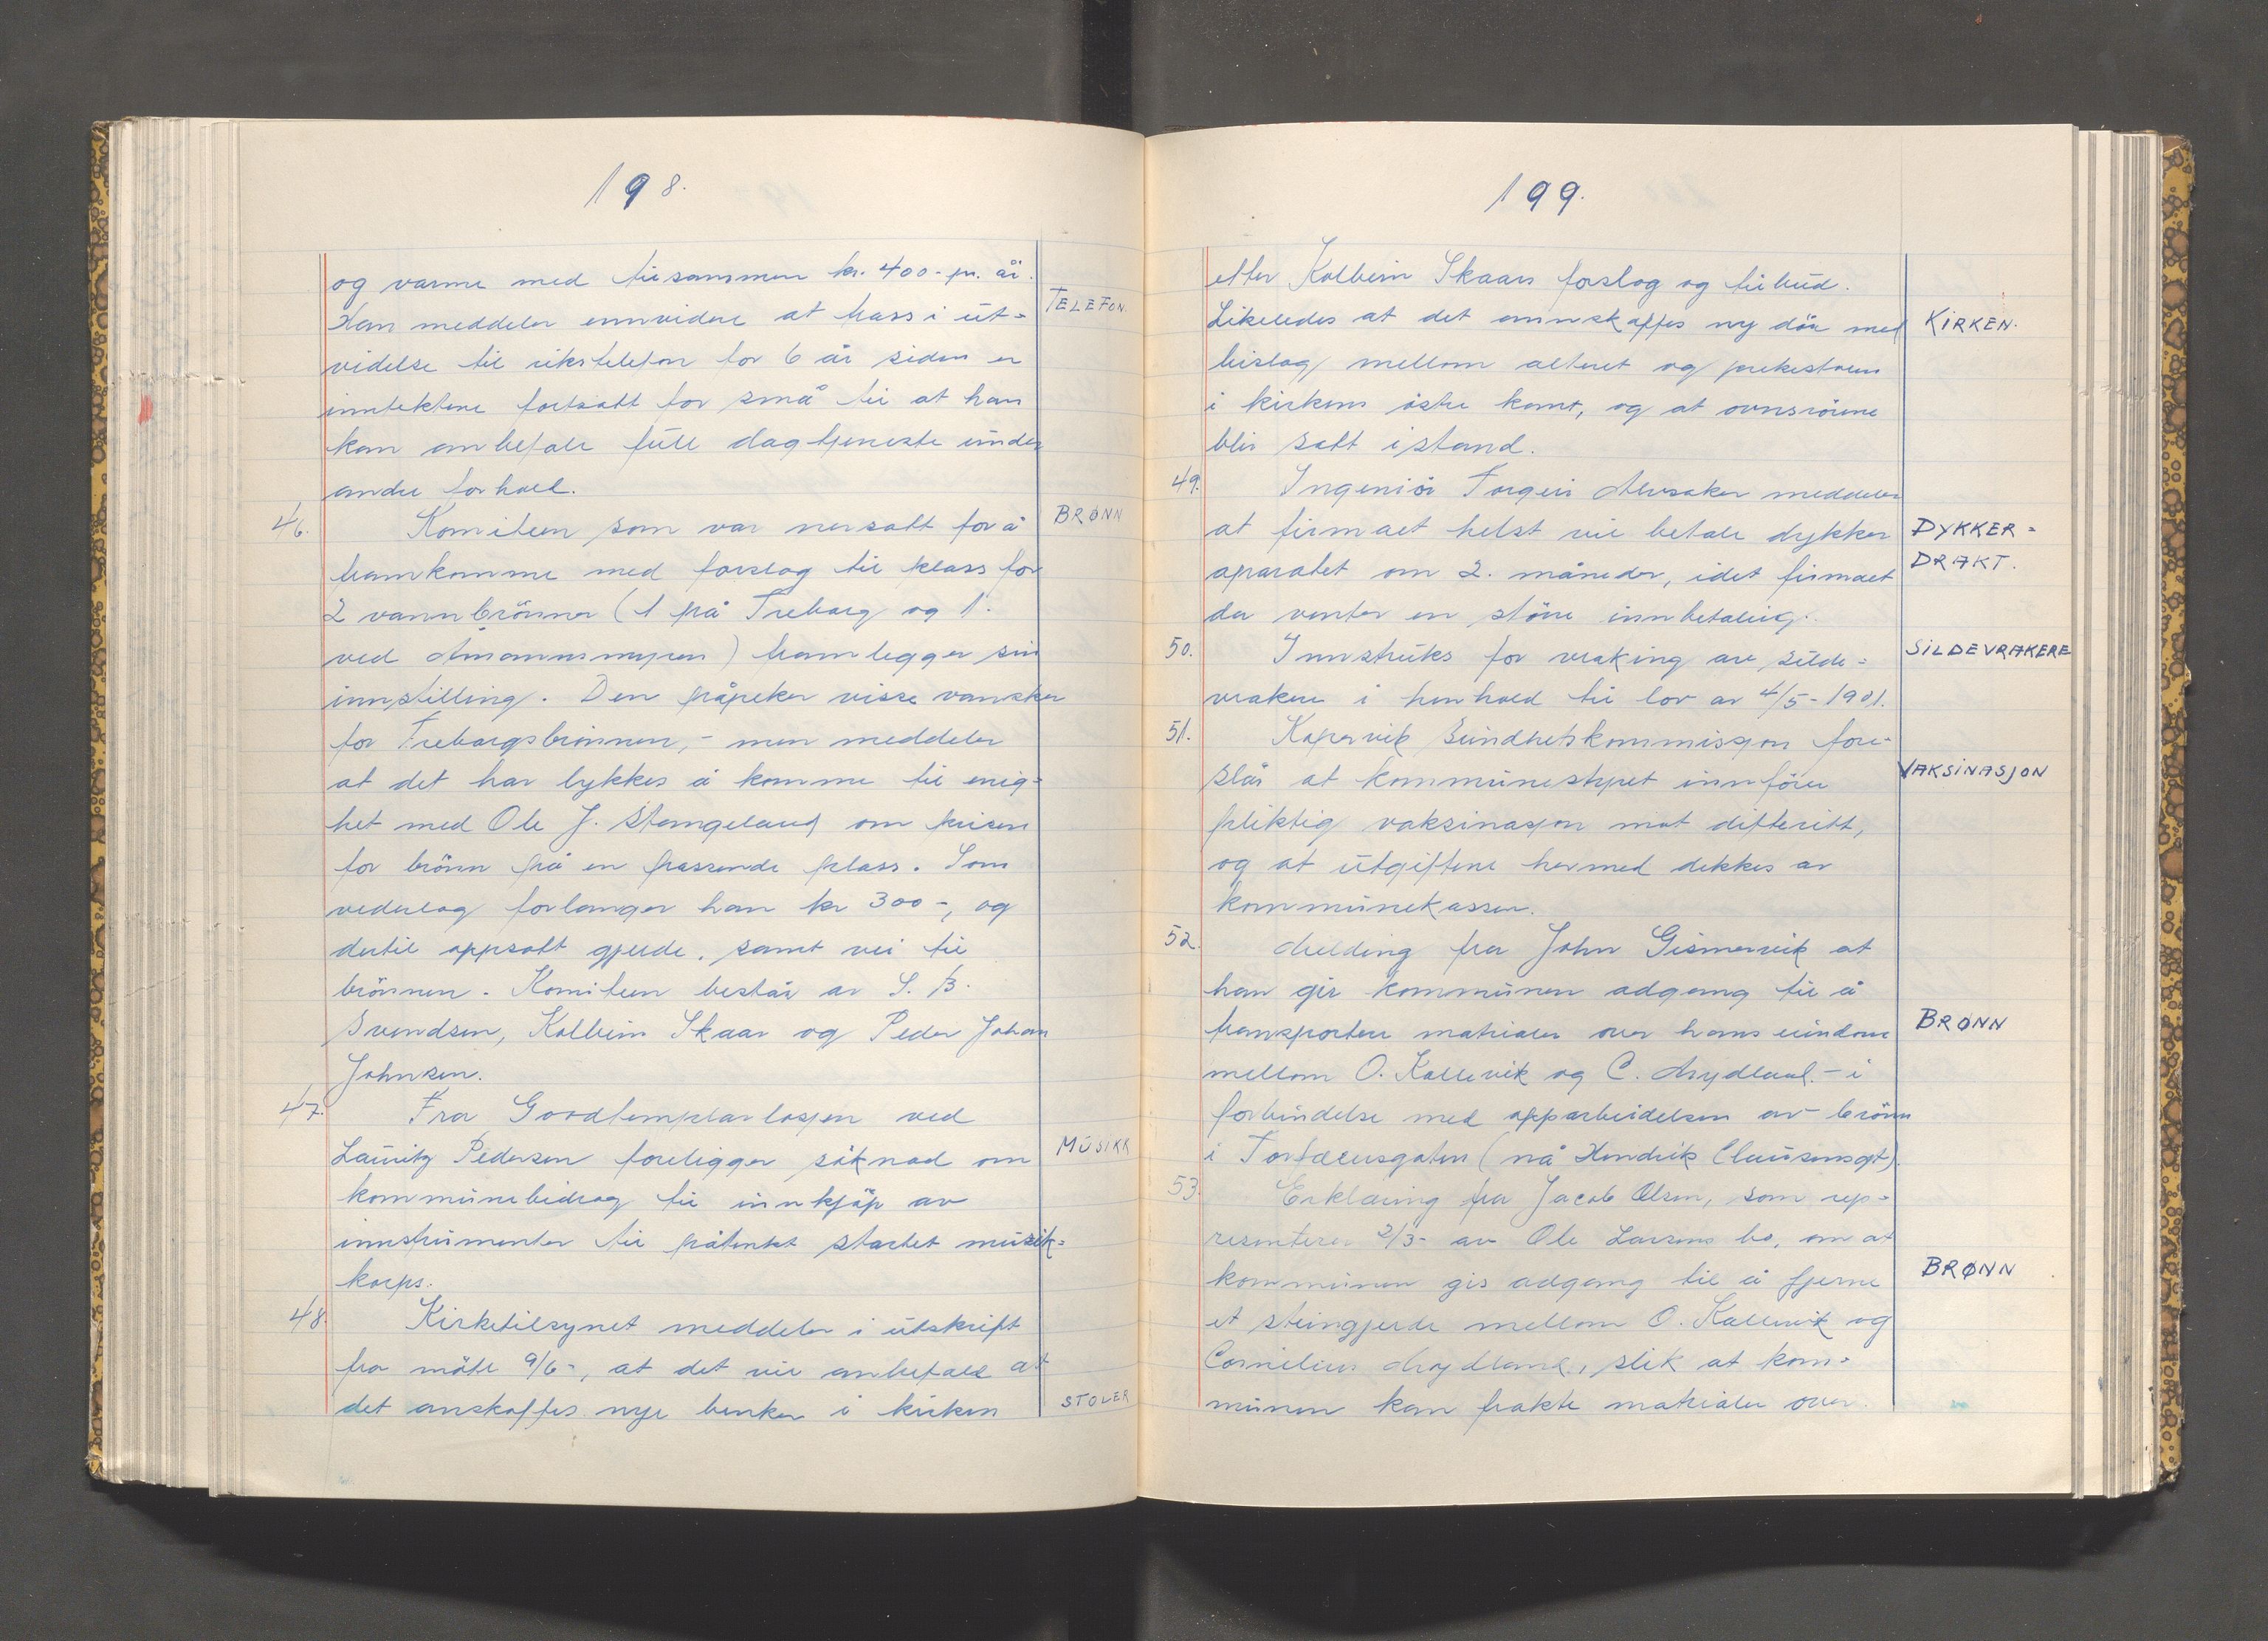 198.
og varme med tilsammen kr. 400- pr. år.
Han meddeler ennvidere at trass i ut-
TELEFON.
videlse til rikstelefon for 6 år siden er
inntektene fortsatt for små til at han
kan anbefale full dagtjeneste under
andre forhold.
46.
Komiteen som var nersatt for å
BRØNN
framkomme med forslag til plass for
2 vannbrönner (1 på Treborg og 1.
ved) framlegger sin
innstilling. Den påpeker visse vansker
for Treborgsbrönnen, - men meddeler
at det har lykkes å komme til enig-
het med Ole J. Stangeland om prisen
for brönn på en passende plass. Som
vederlag forlanger han kr 300-, og
dertil oppsatt gjerde, samt vei til
brönnen. Komiteen består av S. B.
Svendsen, Kolbein Skaar og Peder Johan
Johnsen.
47.
Fra Goodtemplarlosjen ved
Lauritz Pedersen foreligger söknad om
MUSIKK
kommunebidrag til innkjöp av
innstrumenter til påtenkt startet musik-
korps.
48.
Kirketilsynet meddeler i utskrift
fra möte 9/6-, at det vil anbefale at
det anskaffes nye benker i kirken
STOLER
199.
etter Kolbein Skaars forslag og tilbud.
Likeledes at det annskaffes ny dör med
KIRKEN.
bislag mellom alteret og prekestolen
i kirkens östre kant, og at ovnsrörene
blir satt istand.
49.
Ingeniör Torgeir Alvsaker meddeler
at firmaet helst vil betale dykker
DYKKER-
aparatet om 2. måneder, idet firmaet
DRAKT.
da venter en större innbetaling.
50.
Innstruks for vraking av silde-
SILDEVRAKERE
vrakere i henhold til lov av 4/5-1901.
51.
Kopervik Sundhetskommisjon fore-
slår at kommunestyret innförer
VAKSINASJON
pliktig vaksinasjon mot difteritt,
og at utgiftene hermed dekkes av
kommunekassen.
52.
Melding fra John Gismervik at
han gir kommunen adgang til å
transportere matrialer over hans eiendom
BRØNN
mellom O. Kallevik og C. Mydland. - i
forbindelse med opparbeidelsen av brönn
i Torfæusgaten (nå Hendrik Clausensgt).
53.
Erklæring fra Jacob Olsen, som rep-
resenterer 2/3- av Ole Larsens bo, om at
kommunen gis adgang til å fjerne
BRØNN
et steingjerde mellom O. Kallevik og
Cornelius Mydland, slik at kom-
munen kan frakte matrialer over.